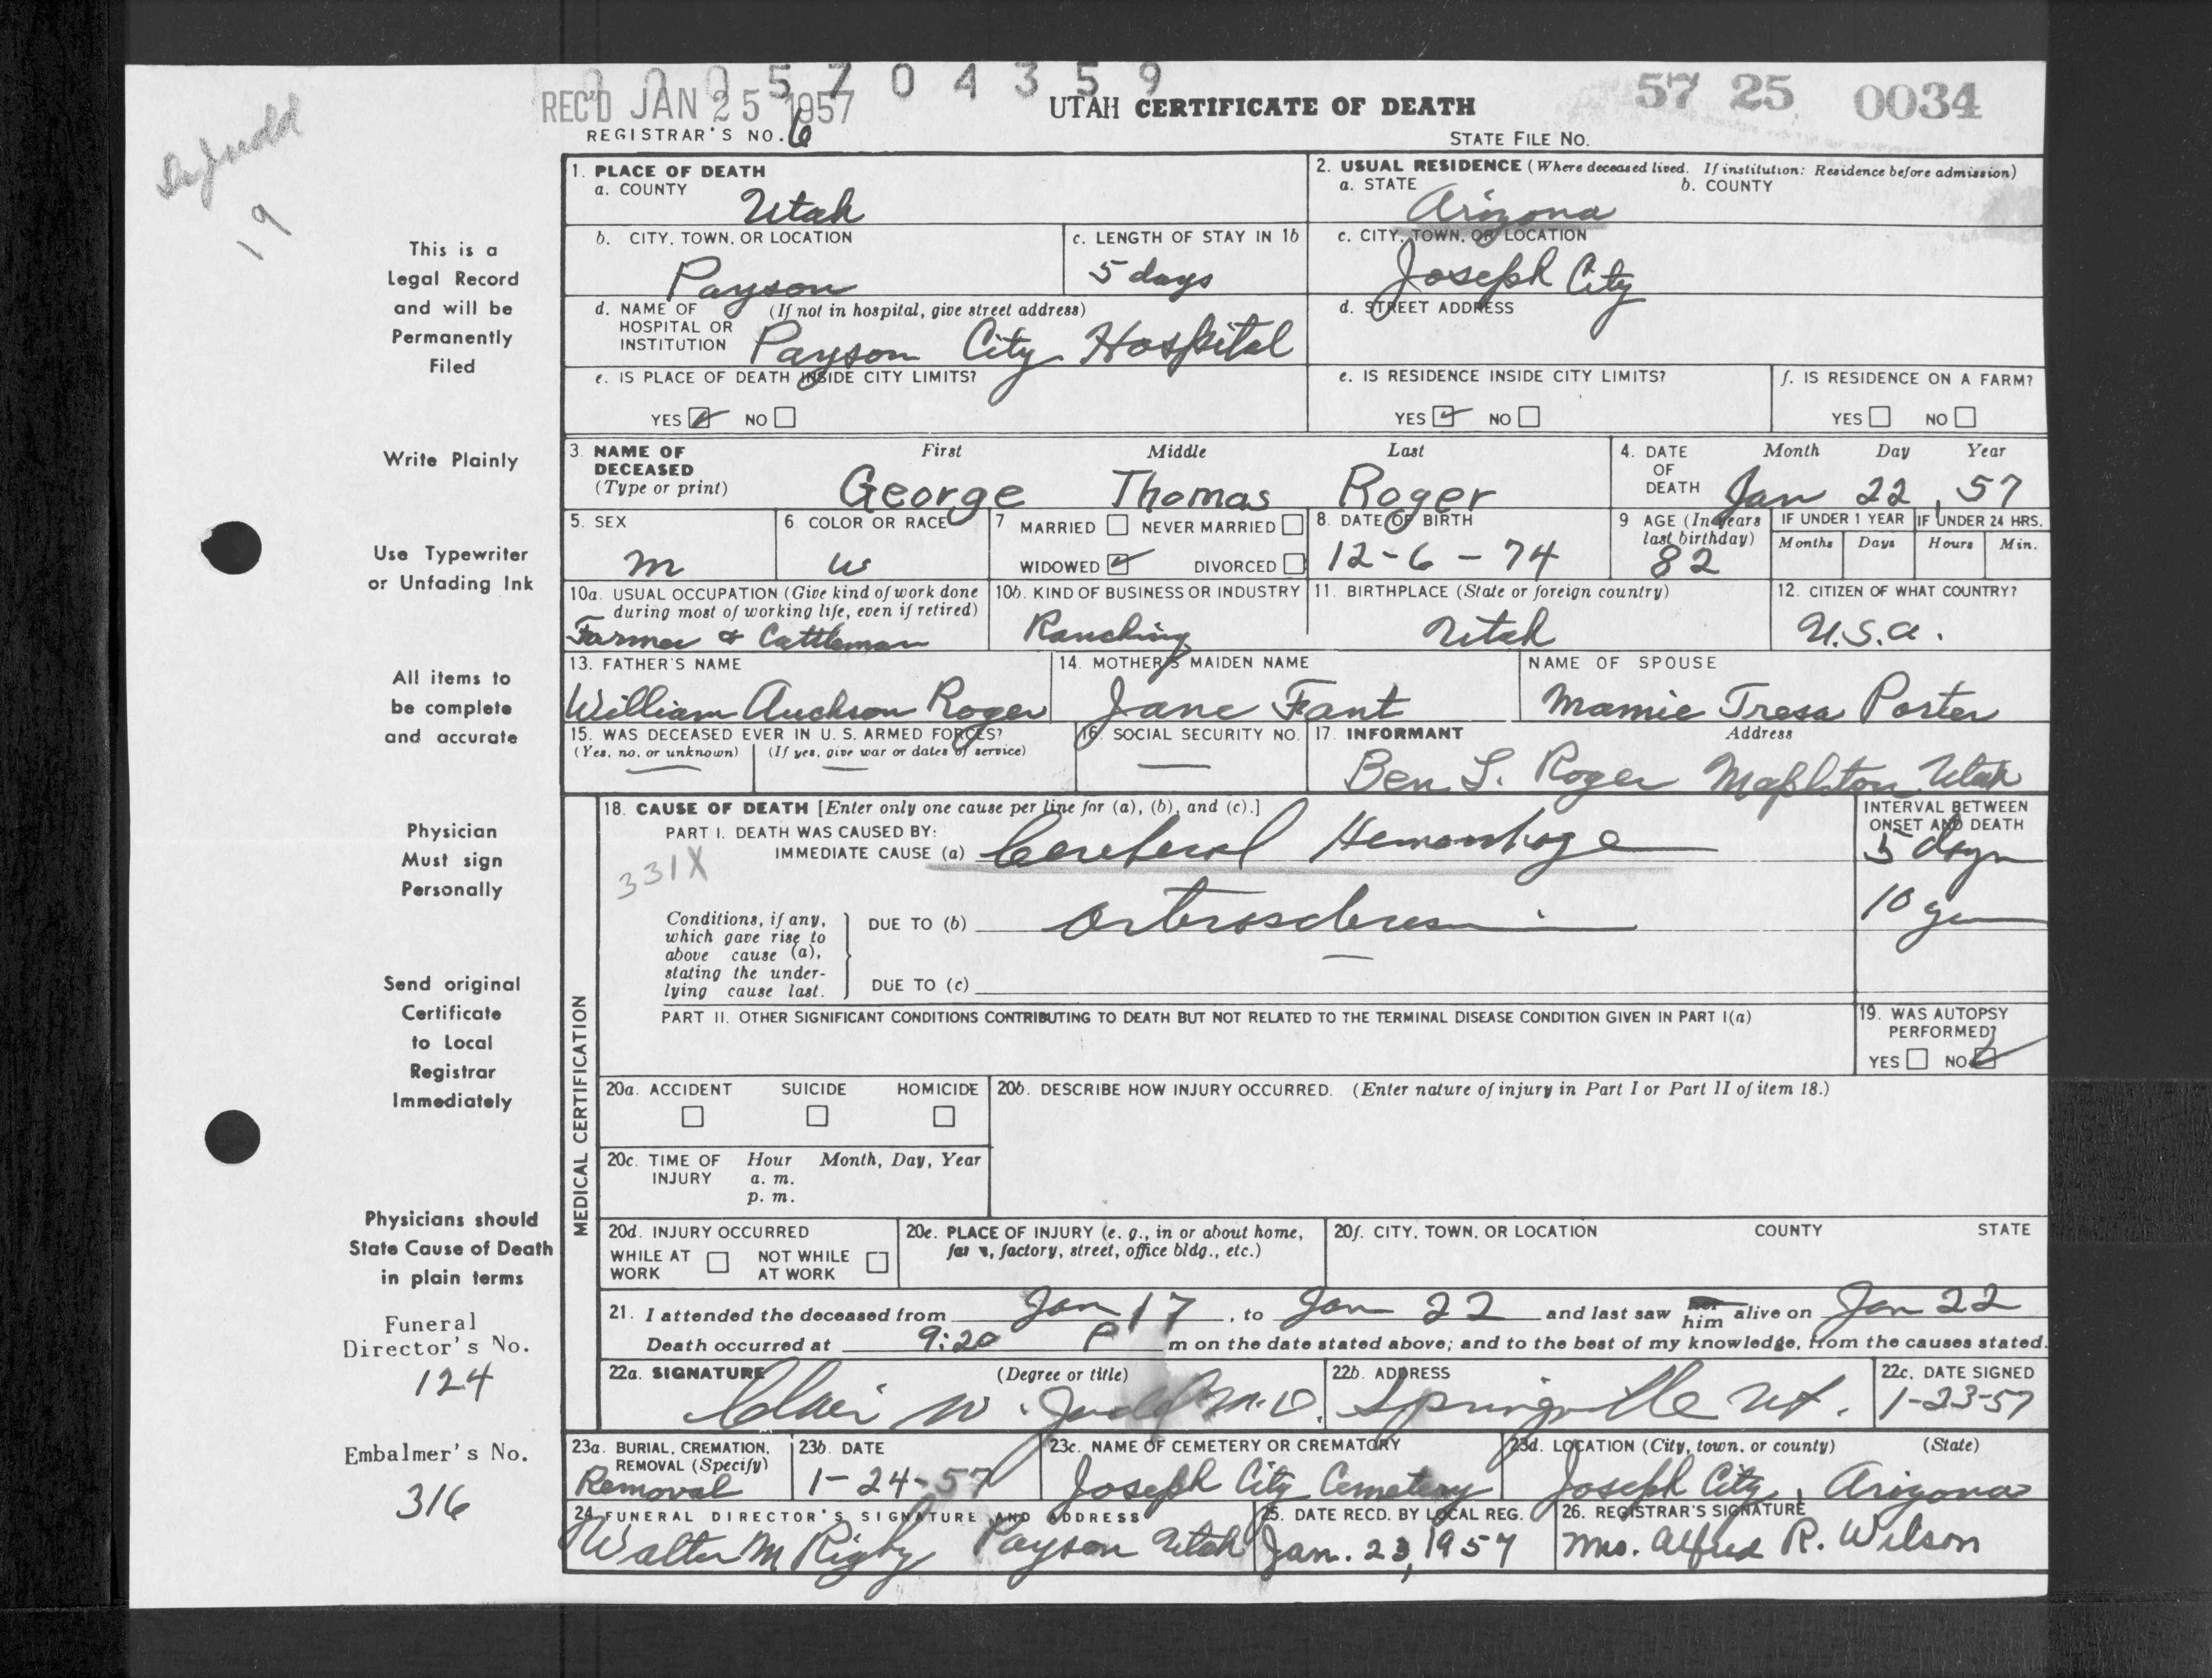 0 0 0 5 7 0 4 3 5 9
REC'D JAN 25 1957
UTAH CERTIFICATE OF DEATH
57 25 0034
REGISTRAR'S NO. 6
STATE FILE NO.
19
This is a
Legal Record
and will be
Permanently
Filed
Write Plainly
Use Typewriter
or Unfading Ink
All items to
be complete
and accurate
Physician
Must sign
Personally
Send original
Certificate
to Local
Registrar
Immediately
Physicians should
State Cause of Death
in plain terms
Funeral
Director's No.
124
Embalmer's No.
316
1. PLACE OF DEATH
a. COUNTY
Utah
2. USUAL RESIDENCE (Where deceased lived. If institution: Residence before admission)
a. STATE b. COUNTY
Arizona
b. CITY, TOWN, OR LOCATION
Payson
c. LENGTH OF STAY IN 1b
5 days
c. CITY, TOWN, OR LOCATION
Joseph City
d. NAME OF (If not in hospital, give street address)
HOSPITAL OR
INSTITUTION Payson City Hospital
d. STREET ADDRESS
e. IS PLACE OF DEATH INSIDE CITY LIMITS?
YES NO
e. IS RESIDENCE INSIDE CITY LIMITS?
YES NO
f. IS RESIDENCE ON A FARM?
YES NO
3. NAME OF DECEASED (Type or print)
First Middle Last
George Thomas Roger
4. DATE OF DEATH
Month Day Year
Jan 22, 57
5. SEX
m
6. COLOR OR RACE
w
7 MARRIED NEVER MARRIED
WIDOWED DIVORCED
8. DATE OF BIRTH
12-6-74
9 AGE (In years last birthday)
82
IF UNDER 1 YEAR IF UNDER 24 HRS.
Months Days Hours Min.
10a. USUAL OCCUPATION (Give kind of work done
during most of working life, even if retired)
Farmer & Cattleman
10b. KIND OF BUSINESS OR INDUSTRY
Ranching
11. BIRTHPLACE (State or foreign country)
Utah
12. CITIZEN OF WHAT COUNTRY?
U.S.A.
13. FATHER'S NAME
William Auckson Roger
14. MOTHER'S MAIDEN NAME
Jane Fant
NAME OF SPOUSE
Mamie Tresa Porter
15. WAS DECEASED EVER IN U. S. ARMED FORCES?
(Yes, no, or unknown) (If yes, give war or dates of service)
16. SOCIAL SECURITY NO.
17. INFORMANT Address
Ben L. Roger Mapleton Utah
MEDICAL CERTIFICATION
18. CAUSE OF DEATH [Enter only one cause per line for (a), (b), and (c).]
INTERVAL BETWEEN
ONSET AND DEATH
PART I. DEATH WAS CAUSED BY:
IMMEDIATE CAUSE (a) Cerebral Hemorrhage
5 days
331X
Conditions, if any,
which gave rise to
above cause (a),
stating the under-
lying cause last.
DUE TO (b)
10 yr
DUE TO (c)
PART II. OTHER SIGNIFICANT CONDITIONS CONTRIBUTING TO DEATH BUT NOT RELATED TO THE TERMINAL DISEASE CONDITION GIVEN IN PART I(a)
19. WAS AUTOPSY
PERFORMED?
YES NO
20a. ACCIDENT SUICIDE HOMICIDE
20b. DESCRIBE HOW INJURY OCCURRED. (Enter nature of injury in Part I or Part II of item 18.)
20c. TIME OF INJURY Hour Month, Day, Year
a. m.
p. m.
20d. INJURY OCCURRED
WHILE AT WORK NOT WHILE AT WORK
20e. PLACE OF INJURY (e. g., in or about home,
factory, street, office bldg., etc.)
20f. CITY, TOWN, OR LOCATION COUNTY STATE
21. I attended the deceased from Jan 17, to Jan 22 and last saw her him alive on Jan 22
Death occurred at 9:20 P m on the date stated above; and to the best of my knowledge, from the causes stated.
22a. SIGNATURE (Degree or title)
Clair W. Judd M.D.
22b. ADDRESS
Springville Ut.
22c. DATE SIGNED
1-23-57
23a. BURIAL, CREMATION,
REMOVAL (Specify)
Removal
23b. DATE
1-24-57
23c. NAME OF CEMETERY OR CREMATORY
Joseph City Cemetery
23d. LOCATION (City, town, or county) (State)
Joseph City, Arizona
24 FUNERAL DIRECTOR'S SIGNATURE AND ADDRESS
Walter M Rigby Payson Utah
25. DATE RECD. BY LOCAL REG.
Jan. 23, 1957
26. REGISTRAR'S SIGNATURE
Mrs. Alfred R. Wilson